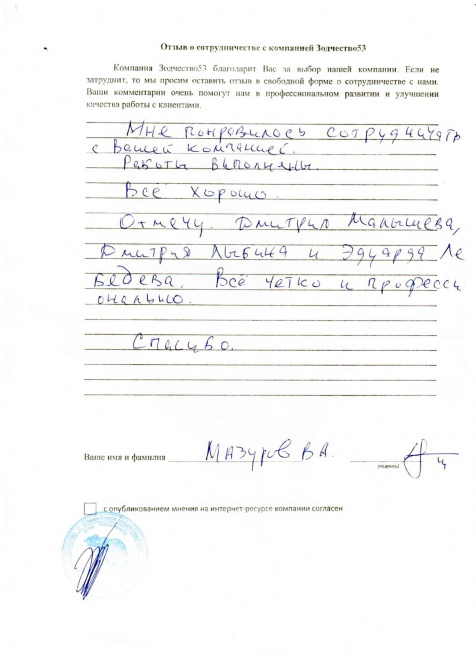 Отзыв о сотрудничестве с компанией Зодчество53
Компания Зодчество53 благодарит Вас за выбор нашей компании. Если не
затруднит, то мы просим оставить отзыв в свободной форме о сотрудничестве с нами.
Ваши комментарии очень помогут нам в профессиональном развитии и улучшении
качества работы с клиентами.
Мне понравилось сотрудничать
с Вашей компанией.
Работы выполнены.
Всё хорошо.
Отмечу. Дмитрия Малышева,
Дмитрия Лыбина и Эдуарда Ле
бедева. Всё четко и професси
онально.
Спасибо.
Ваше имя и фамилия Мазуров В А.
(подпись)
с опубликованием мнения на интернет-ресурсе компании согласен